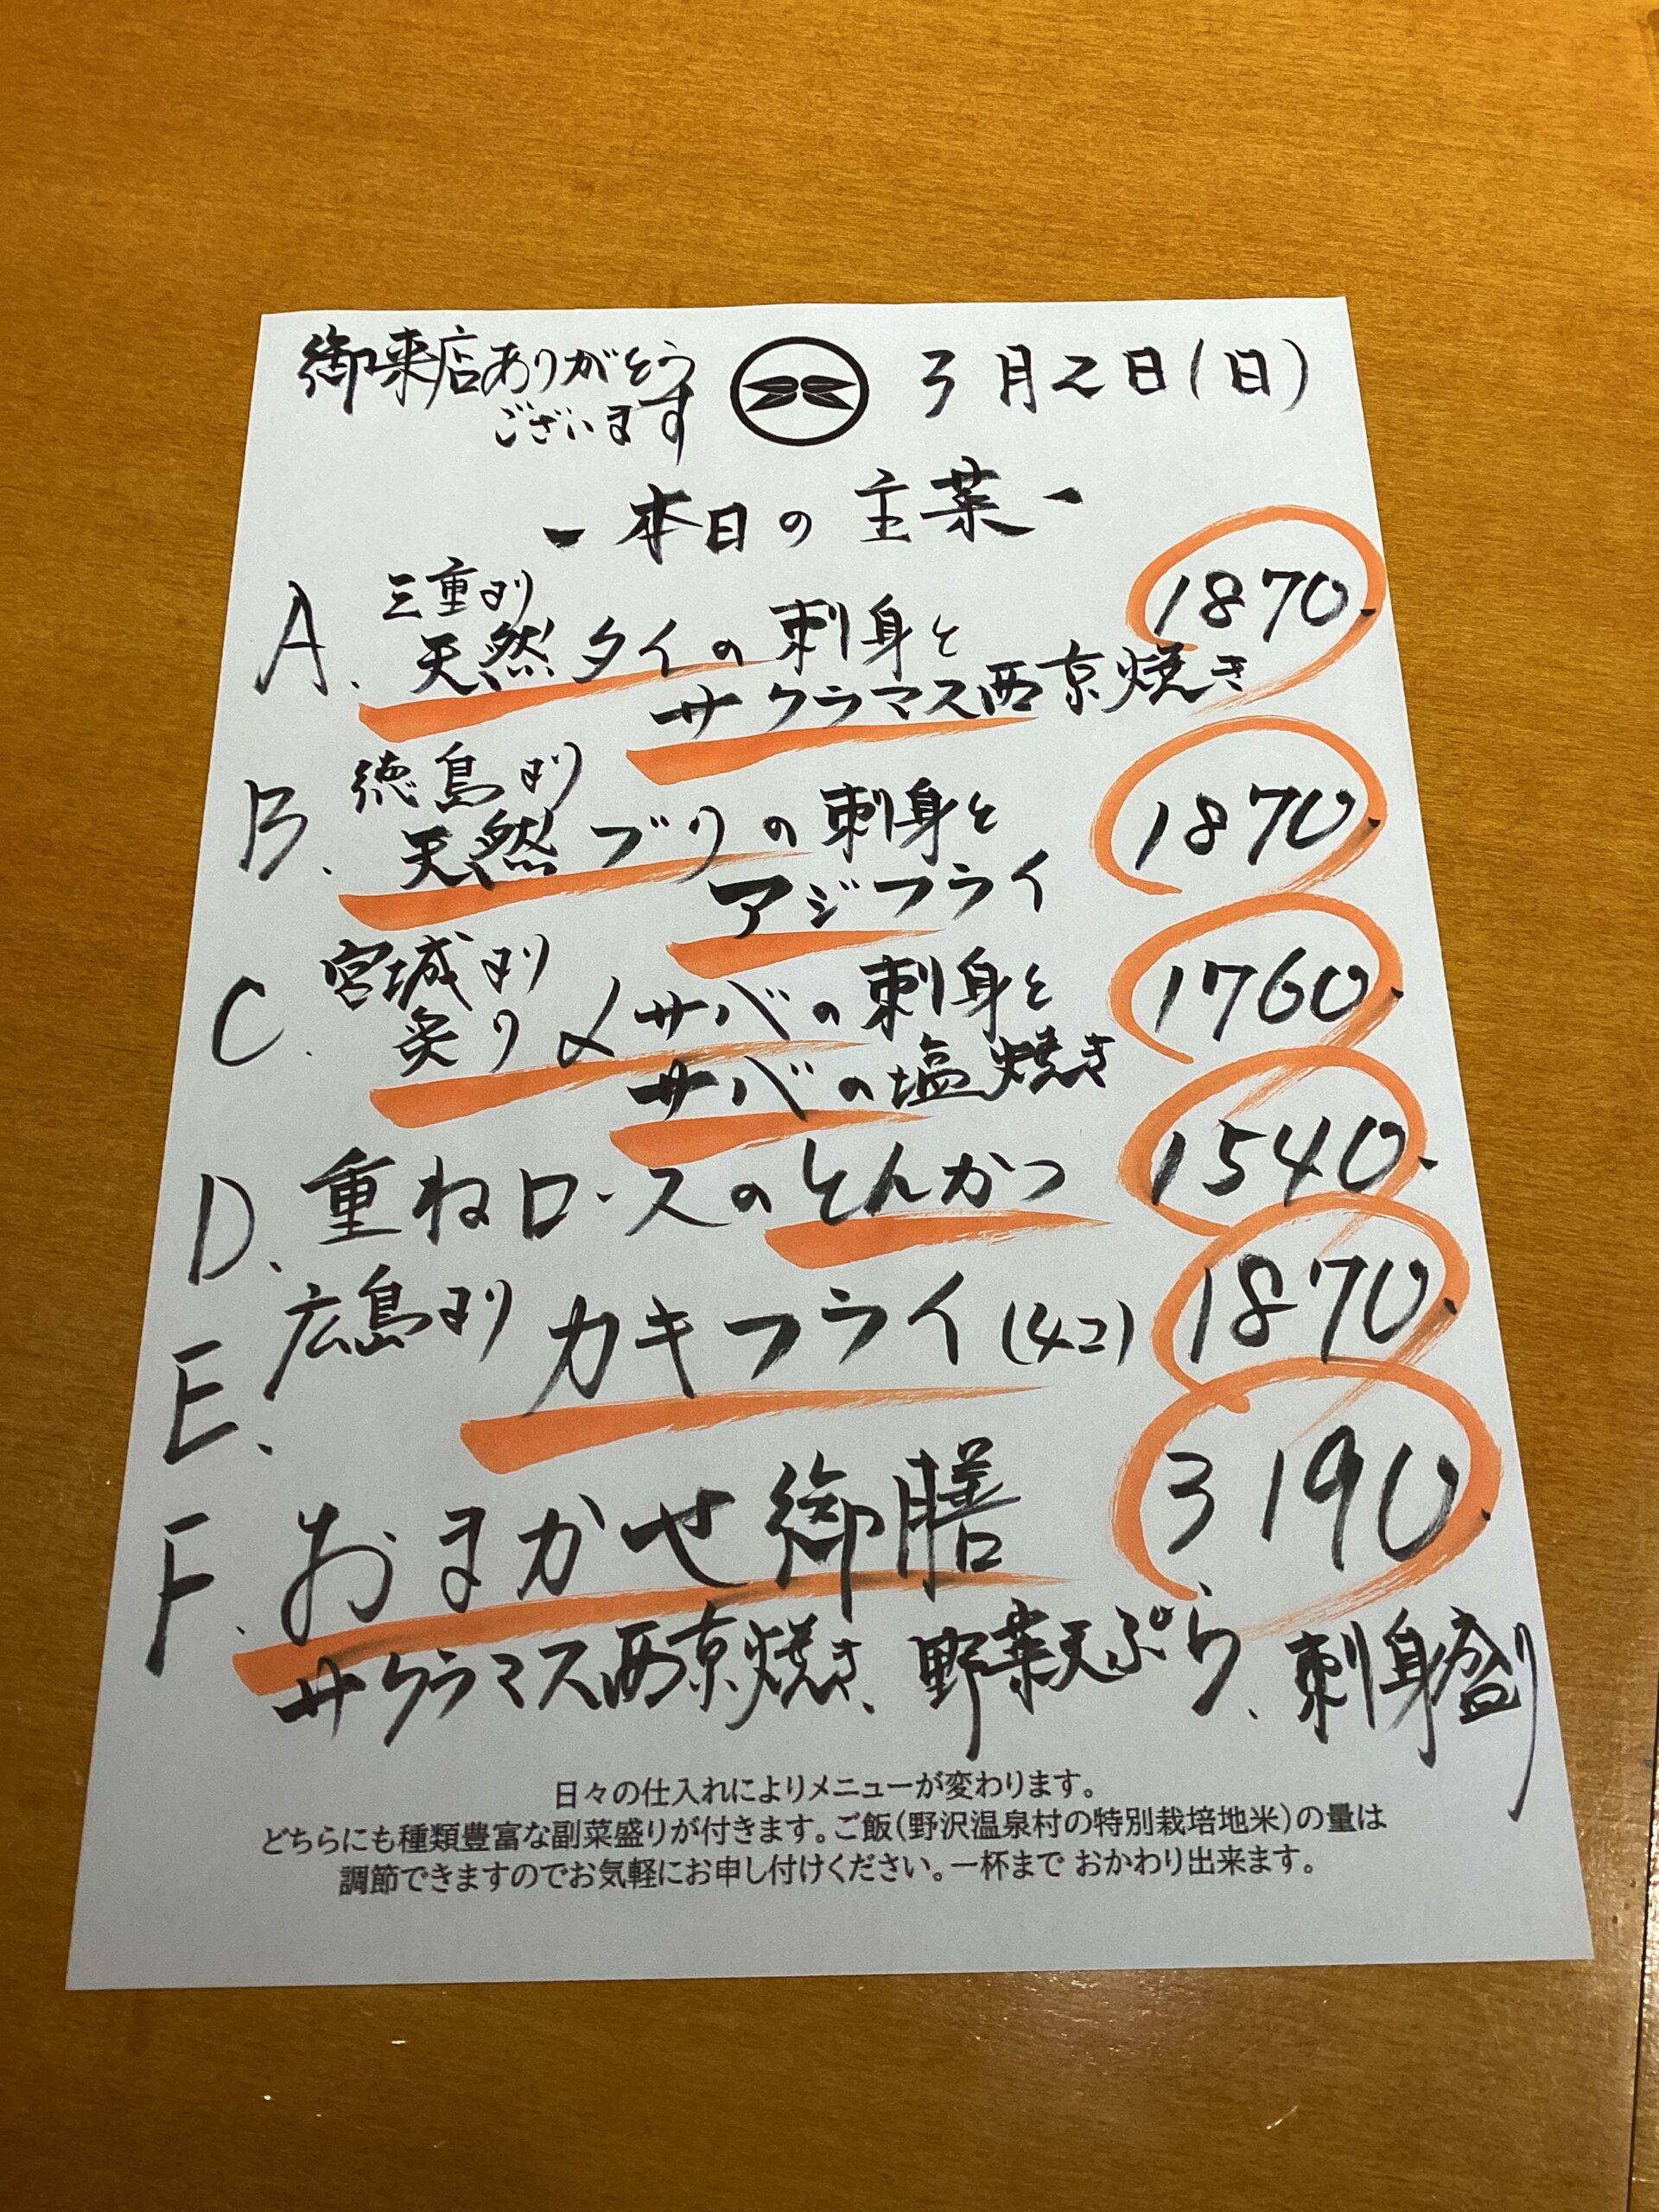 御来店ありがとう
ございます
3月2日(日)
-本日の主菜-
A. 三重より
天然タイの刺身と
サクラマス西京焼き
1870.
B. 徳島より
天然ブリの刺身と
アジフライ
1870.
C. 宮城より
炙り〆サバの刺身と
サバの塩焼き
1760.
D. 重ねロースのとんかつ 1540.
E. 広島より カキフライ(4コ) 1870.
F. おまかせ御膳 3190.
サクラマス西京焼き、野菜天ぷら、刺身盛り
日々の仕入れによりメニューが変わります。
どちらにも種類豊富な副菜盛りが付きます。ご飯(野沢温泉村の特別栽培地米)の量は
調節できますのでお気軽にお申し付けください。一杯まで おかわり出来ます。